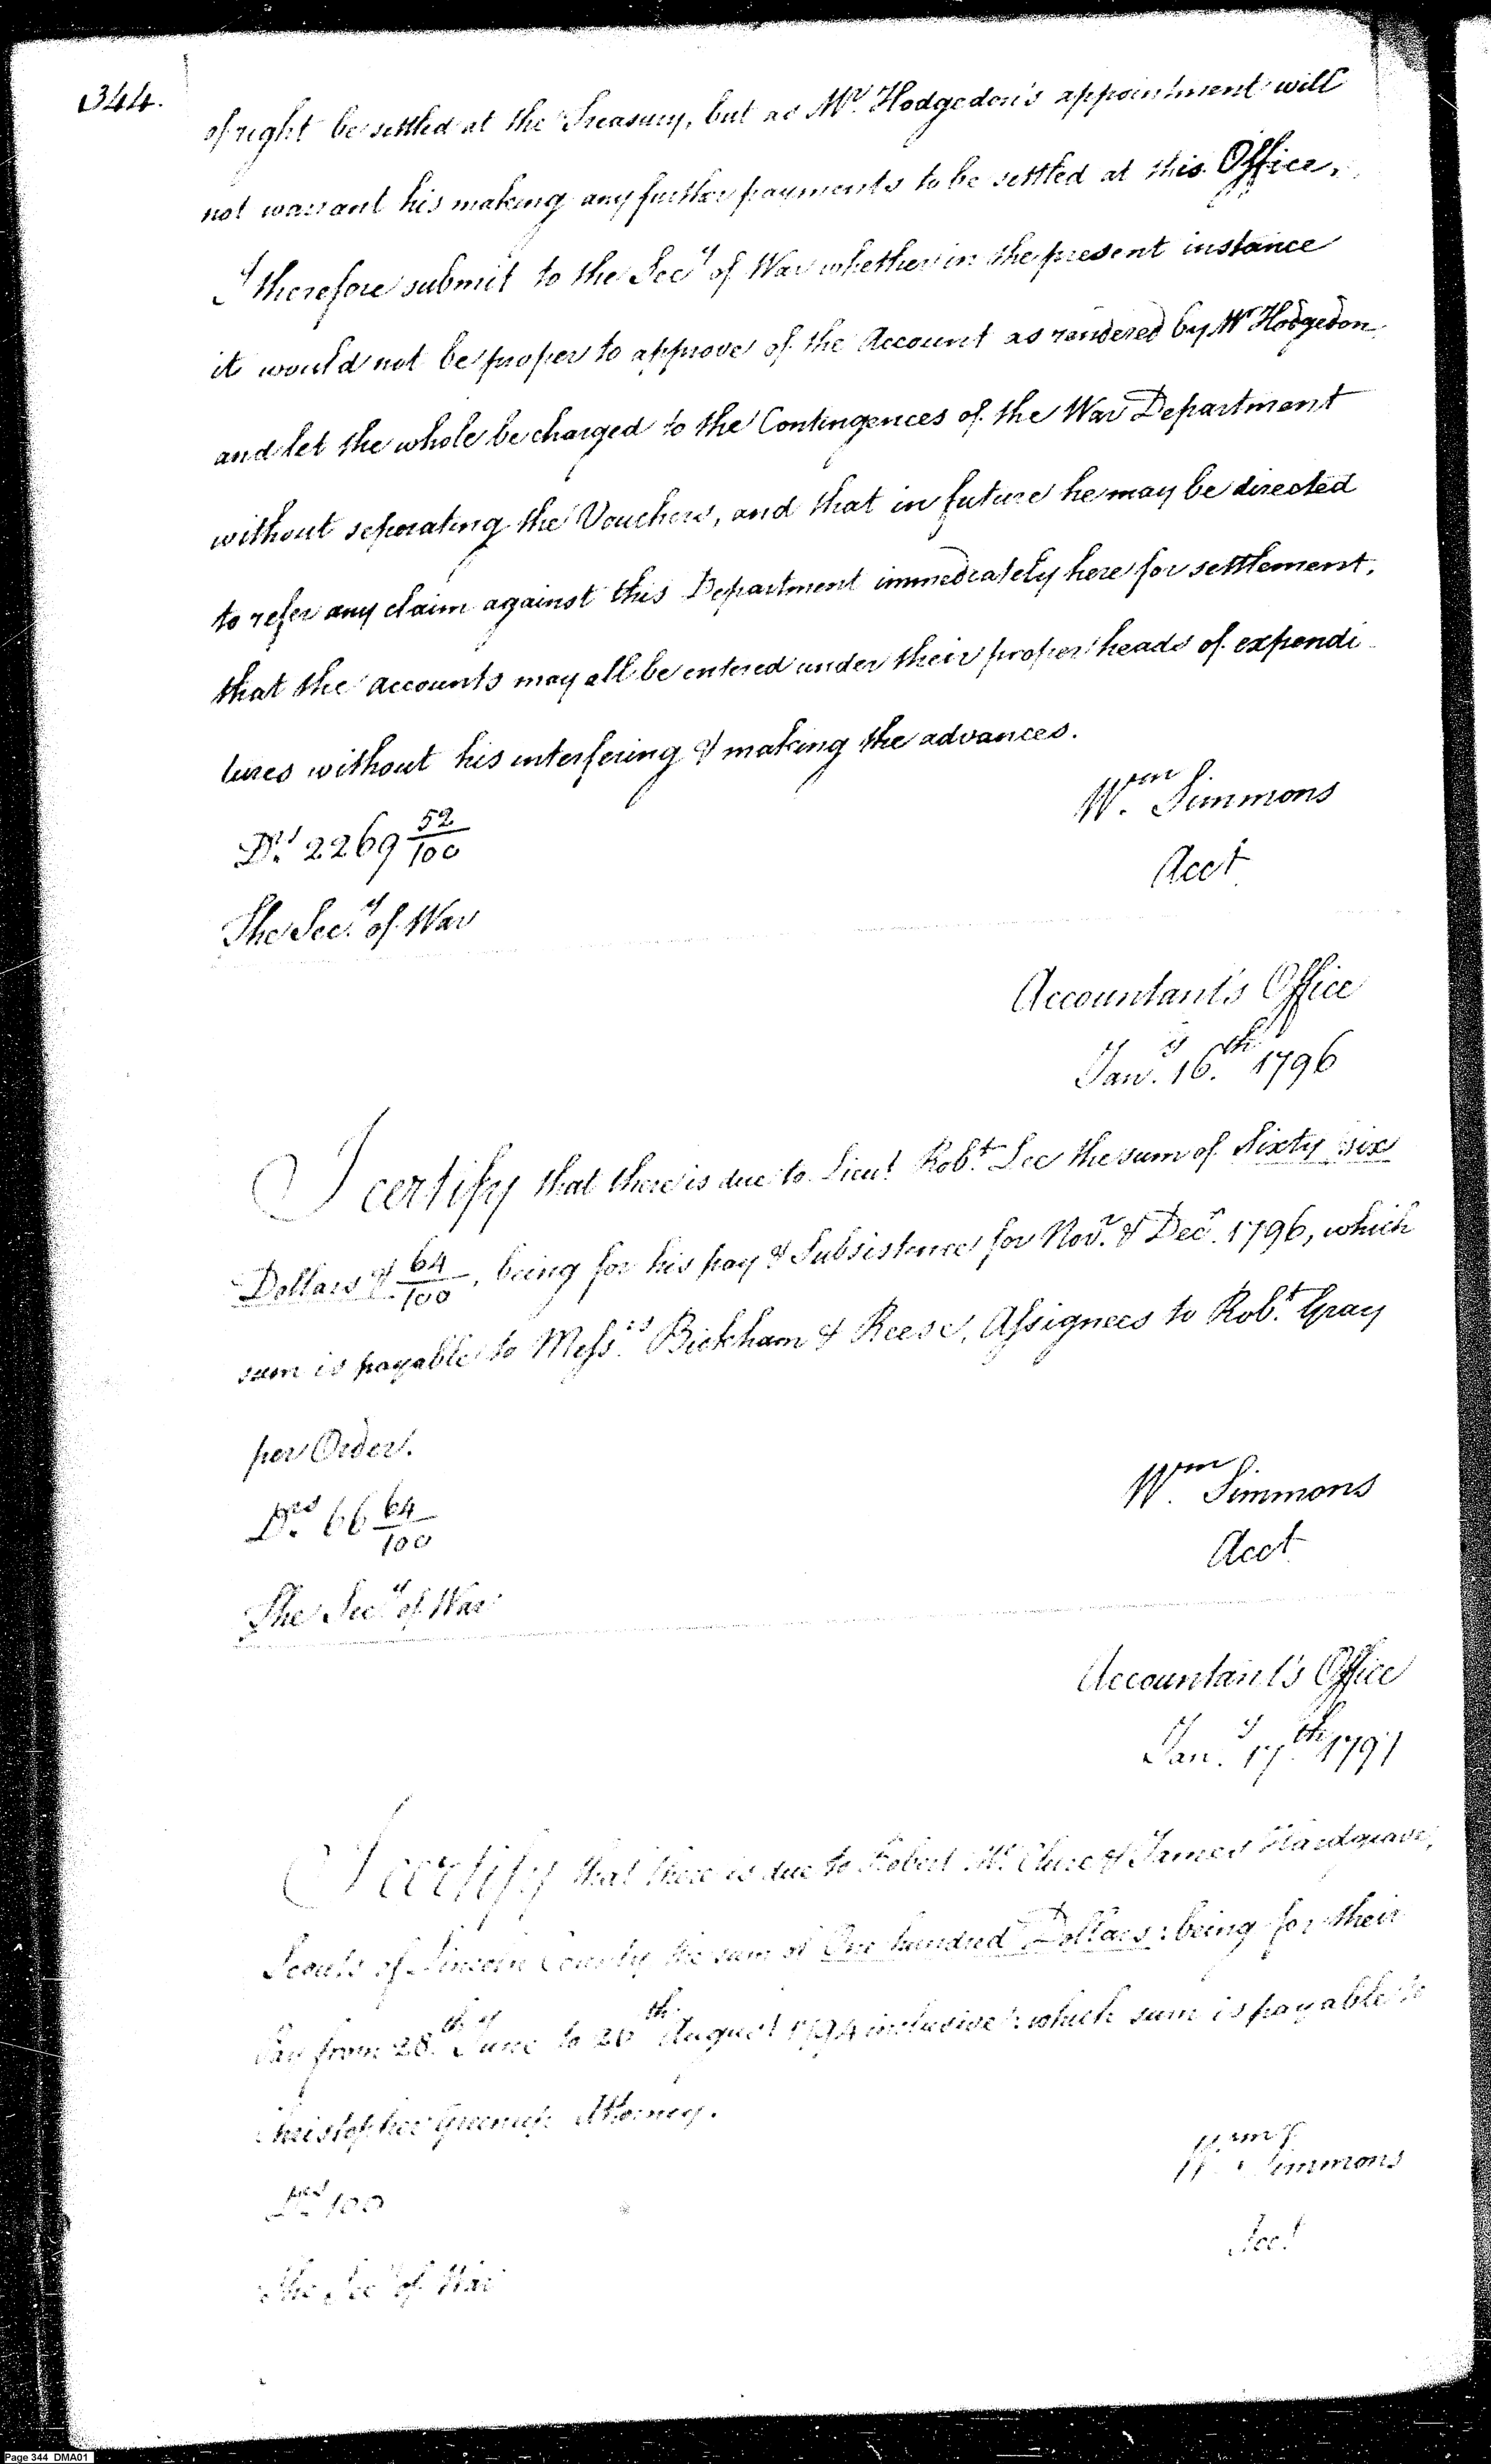 344.
of right be settled at the Treasury, but as Mr. Hodgedon's appointment will
not warrant his making any further payments to be settled at this Office,
I therefore submit to the Secy of War whether in the present instance
it would not be proper to approve of the Account as rendered by Mr Hodgedon
and let the whole be charged to the Contingences of the War Department
without seperating the Vouchers, and that in future he may be directed
to refer any claim against this Department immediately here for settlement,
that the accounts may all be entered under their proper heads of expendi
tures without his interfering & making the advances.
Wm. Simmons
Drs. 2269 52/100
Acct
The Secy. of War
Accountant's Office
Jany. 16th. 1796
I certify that there is due to Lieut Robt. Lee the sum of Sixty six
Dollars & 64/100, being for his pay & Subsistence for Novr. & Decr. 1796, which
sum is payable to Messrs. Bickham & Reese, Assignees to Robt. Gray
per Order.
Wm. Simmons
Drs. 66 64/100
Acct
The Secy of War
Accountant's Office
Jany. 17th. 1797
I certify that there is due to Robert Mc. Clure & James Hardgrave,
Scouts of Lincoln County the sum of One hundred Dollars: being for their
Pay from 28th. June to 26th August 1794 inclusive: which sum is payable to
Christopher Greenup Attorney.
Wm. Simmons
Drs. 100
Acct
The Secy of War
Page 344 DMA01